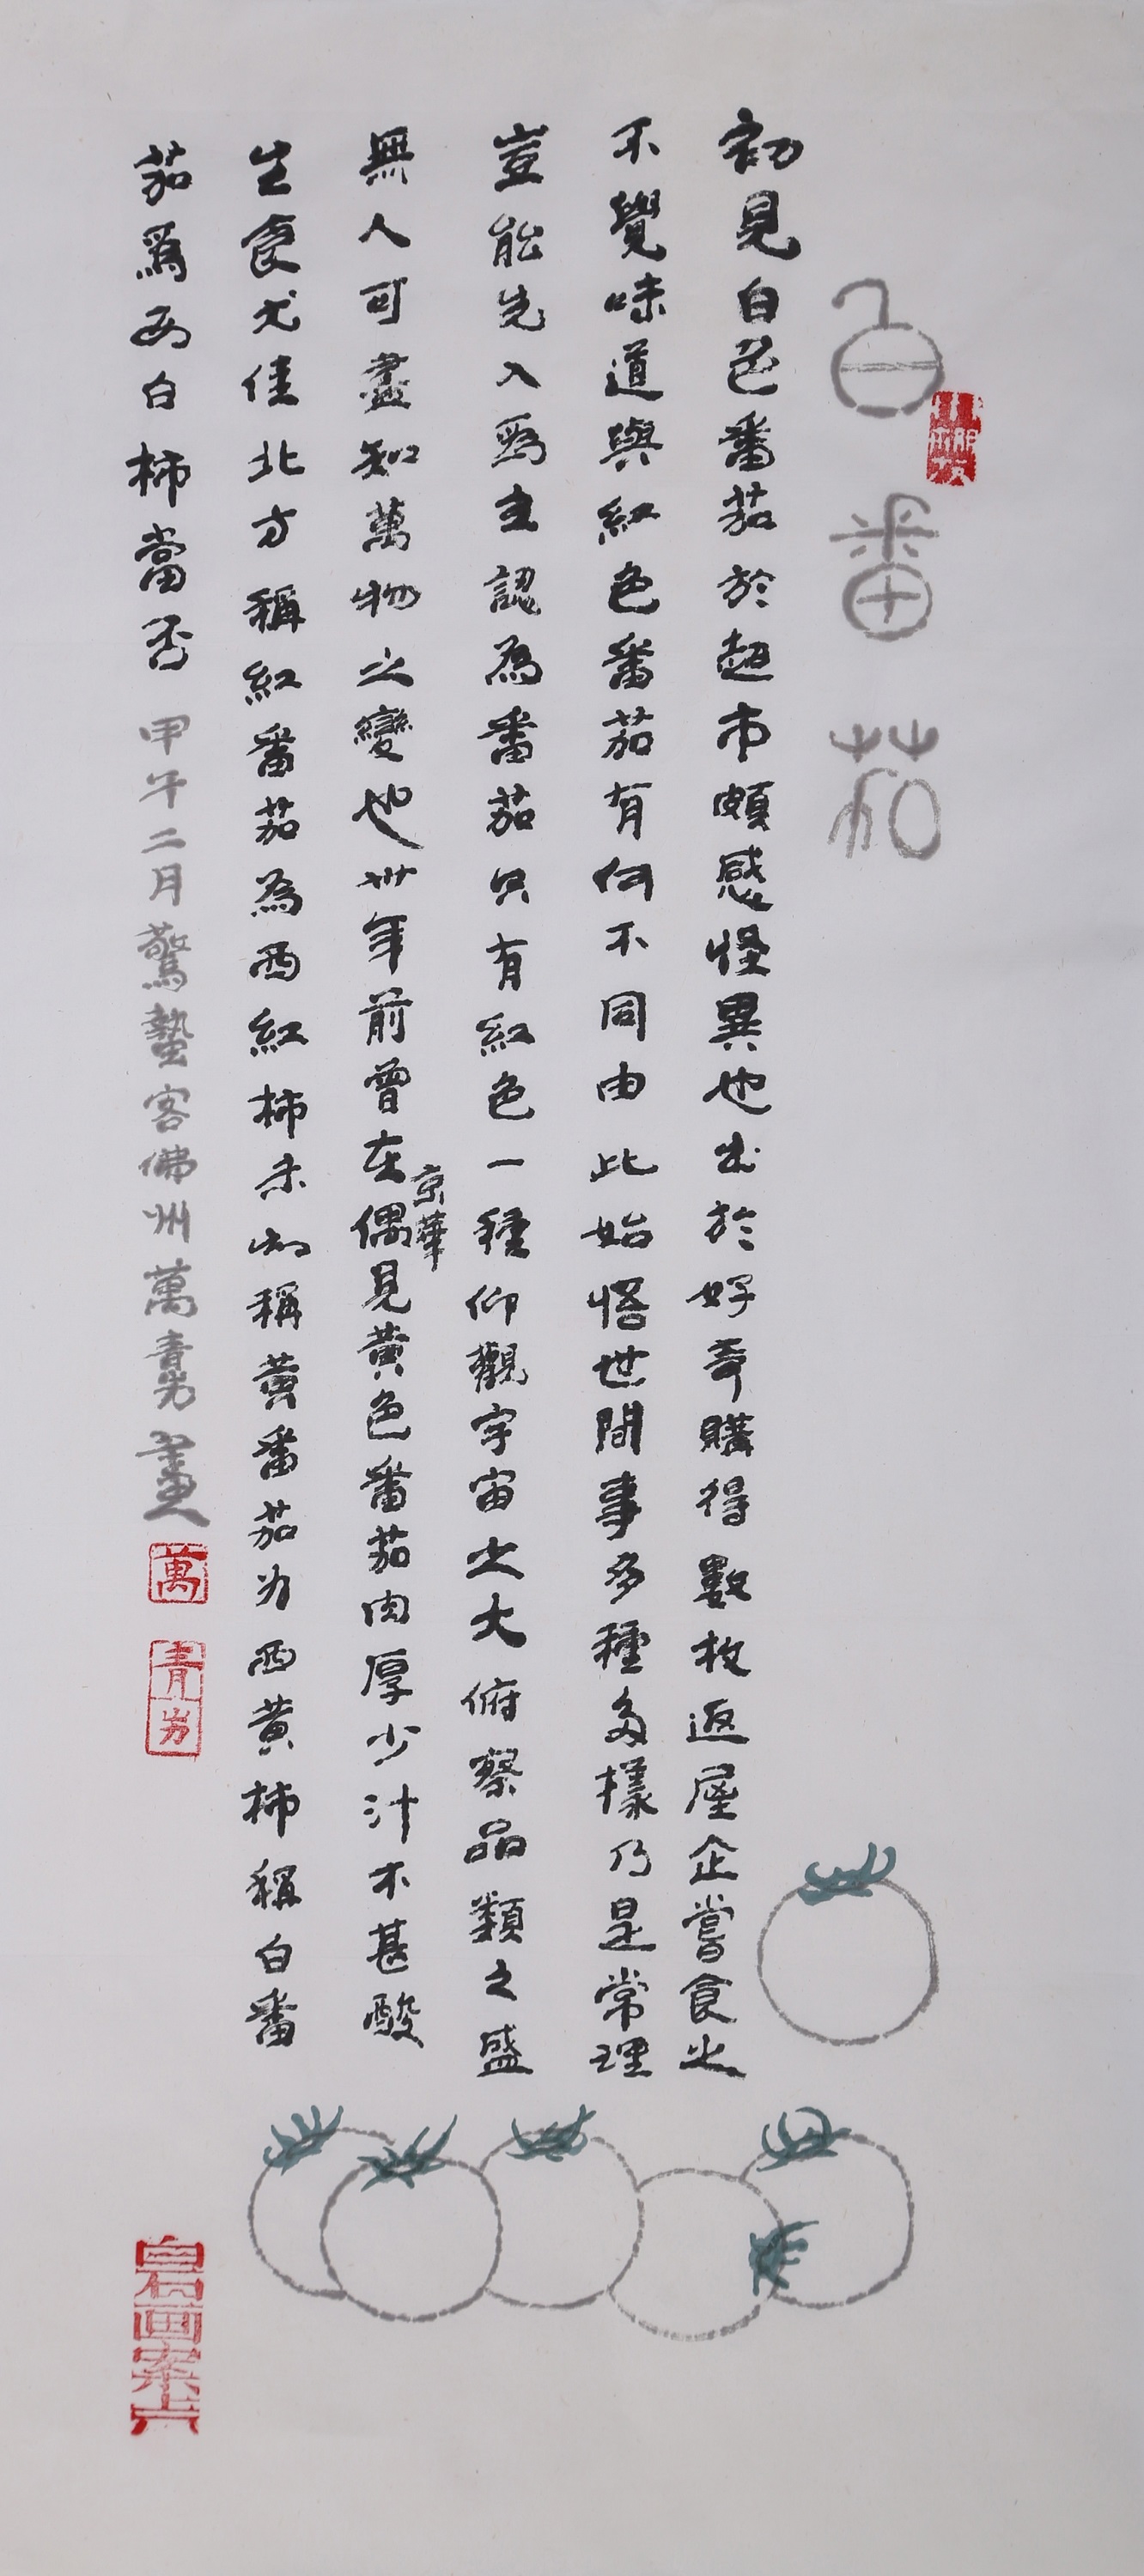 白番茄
初見白色番茄於超市頗感怪異也出於好奇購得數枚返屋企嘗食之
不覺味道與紅色番茄有何不同由此始悟世間事多種多樣乃是常理
豈能先入爲主認為番茄只有紅色一種仰觀宇宙之大俯察品類之盛
無人可盡知萬物之變也卅年前曾在京華偶見黃色番茄肉厚少汁不甚酸
生食尤佳北方稱紅番茄為西紅柿未知稱黃番茄为西黃柿稱白番
茄爲西白柿當否 甲午二月驚蟄客佛州萬青屴畫
萬
青屴
白石画案上